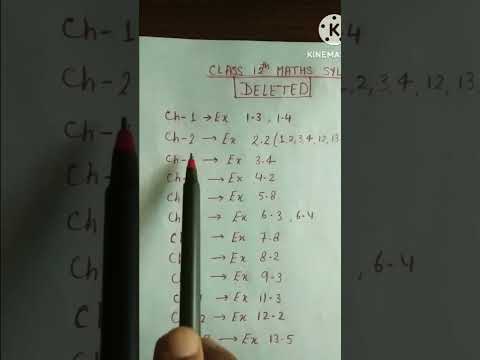 KINEMA
CLASS 12th MATHS SYL
DELETED
Ch-1 → Ex 1.3, 1.4
Ch-2 → Ex 2.2 (1,2,3,4,12,13
Ch- → Ex 3.4
Ch- → Ex 4.2
Ch → Ex 5.8
Ch → Ex 6.3, 6.4
C → Ex 7.8
C → Ex 8.2
Ch → Ex 9.3
→ Ex 11.3
2 → Ex 12.2
→ Ex 13.5
Ch-1
Ch-2
,2,3,4,12,13
, 6.4